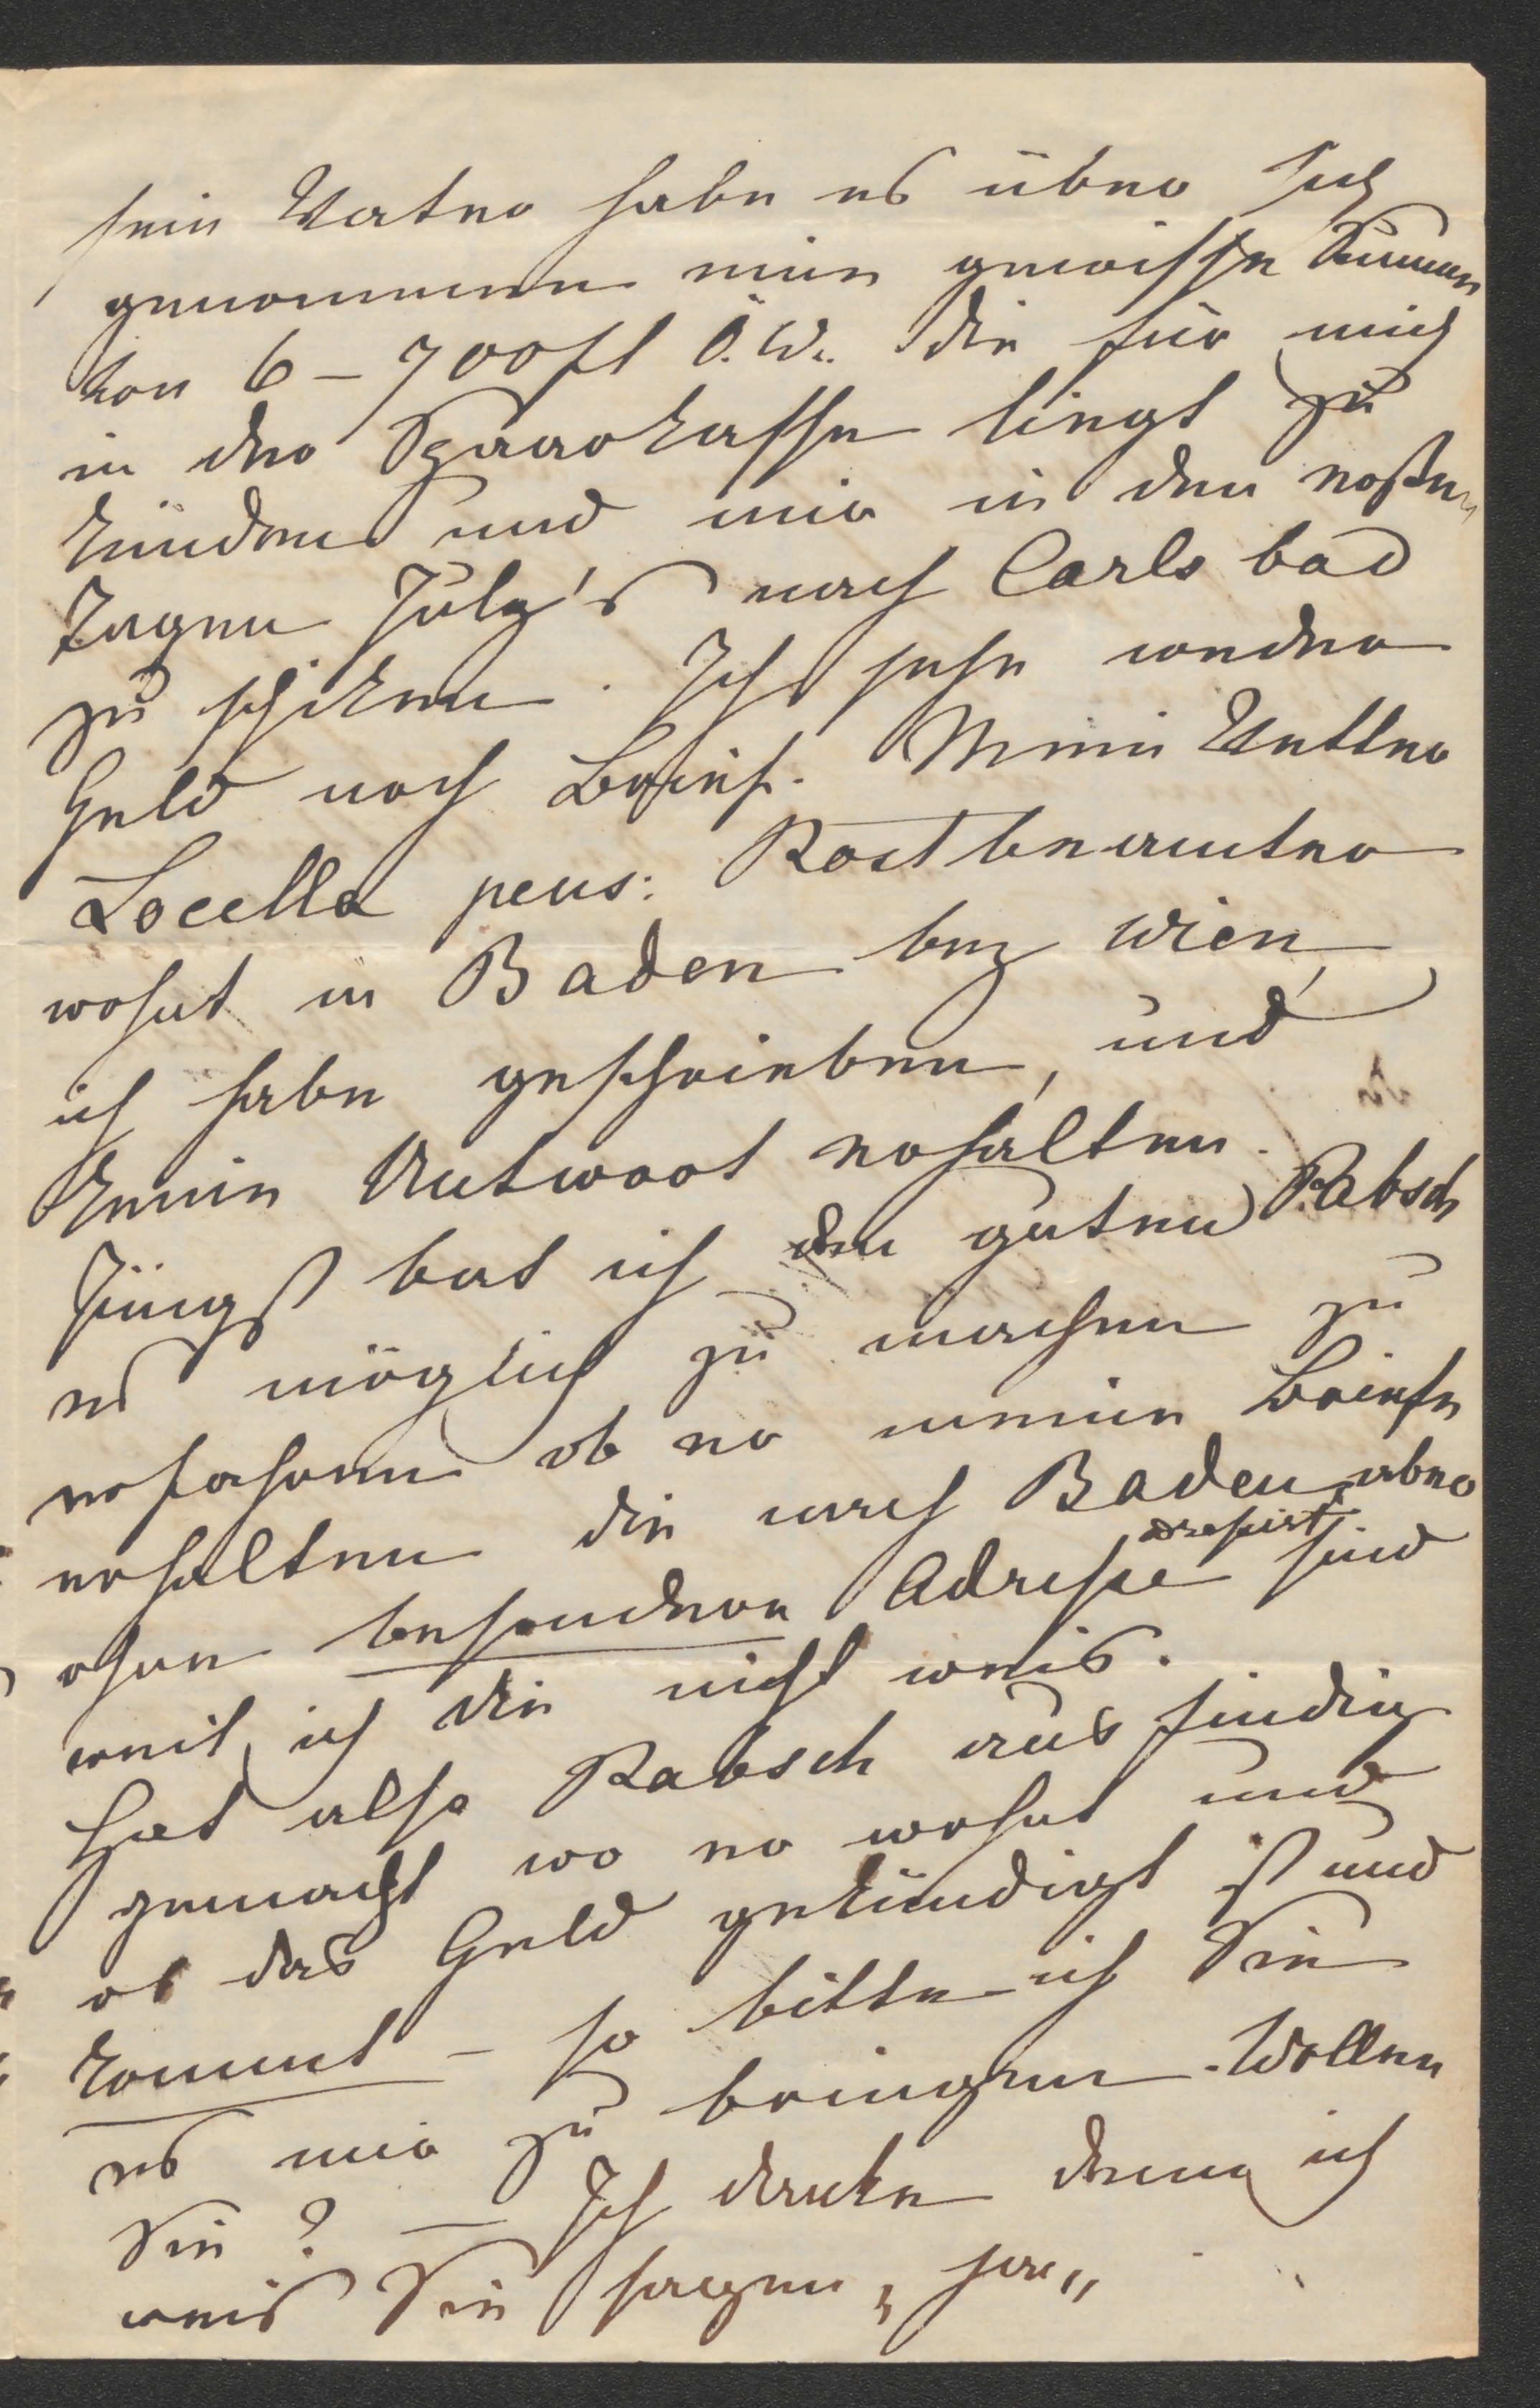 sein Vater habe es über sich
genommen eine gewisse Summe
von 6 – 700 fl Ö. W. die für mich
in der Sparkasse liegt zu
künden und mir in den ersten
Tagen July's nach Carlsbad
zu schiken. Ich sehe weder
Geld noch Brief. Mein Vetter
Locella pens: Postbeamter
wohnt in Baden bey Wien,
ich habe geschrieben, und
keine Antwort erhalten.
Jüngst bat ich den guten Pabsch
es möglich zu machen zu
erfahren ob er meine Briefe
erhalten die nach Baden aber
ohne besondere Adresse adressirt sind
weil ich die nicht weis.
Hat also Pabsch ausfindig
gemacht wo er wohnt und
ob das Geld gekündigt ist und
kommt – so bitte ich Sie
es mir zu bringen. Wollen
Sie? – Ich danke denn ich
weis Sie sagen „ja„